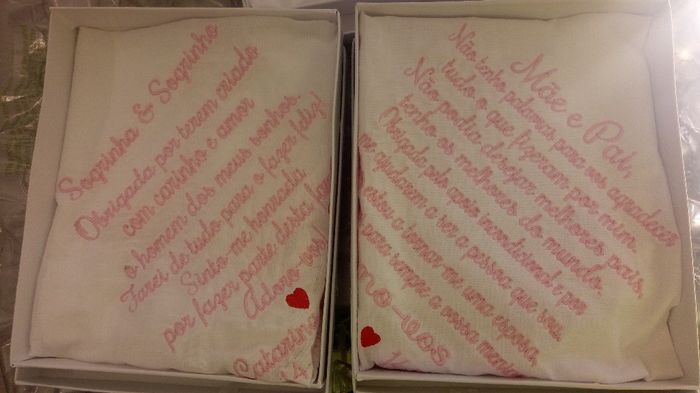 Sogrinha & Sogrinho
Obrigada por terem criado
com carinho e amor
o homem dos meus sonhos.
Farei de tudo para o fazer feliz!
Sinto-me honrada
por fazer parte desta
Adoro-vos!
Catarina
14
Mãe e Pai,
Não tenho palavras para vos agradecer
tudo o que fizeram por mim.
Não podia desejar melhores pais,
tenho os melhores do mundo.
Obrigada pelo apoio incondicional e por
me ajudarem a ser a pessoa que sou.
estou a tornar-me uma esposa,
para sempre a vossa
mo-vos
1